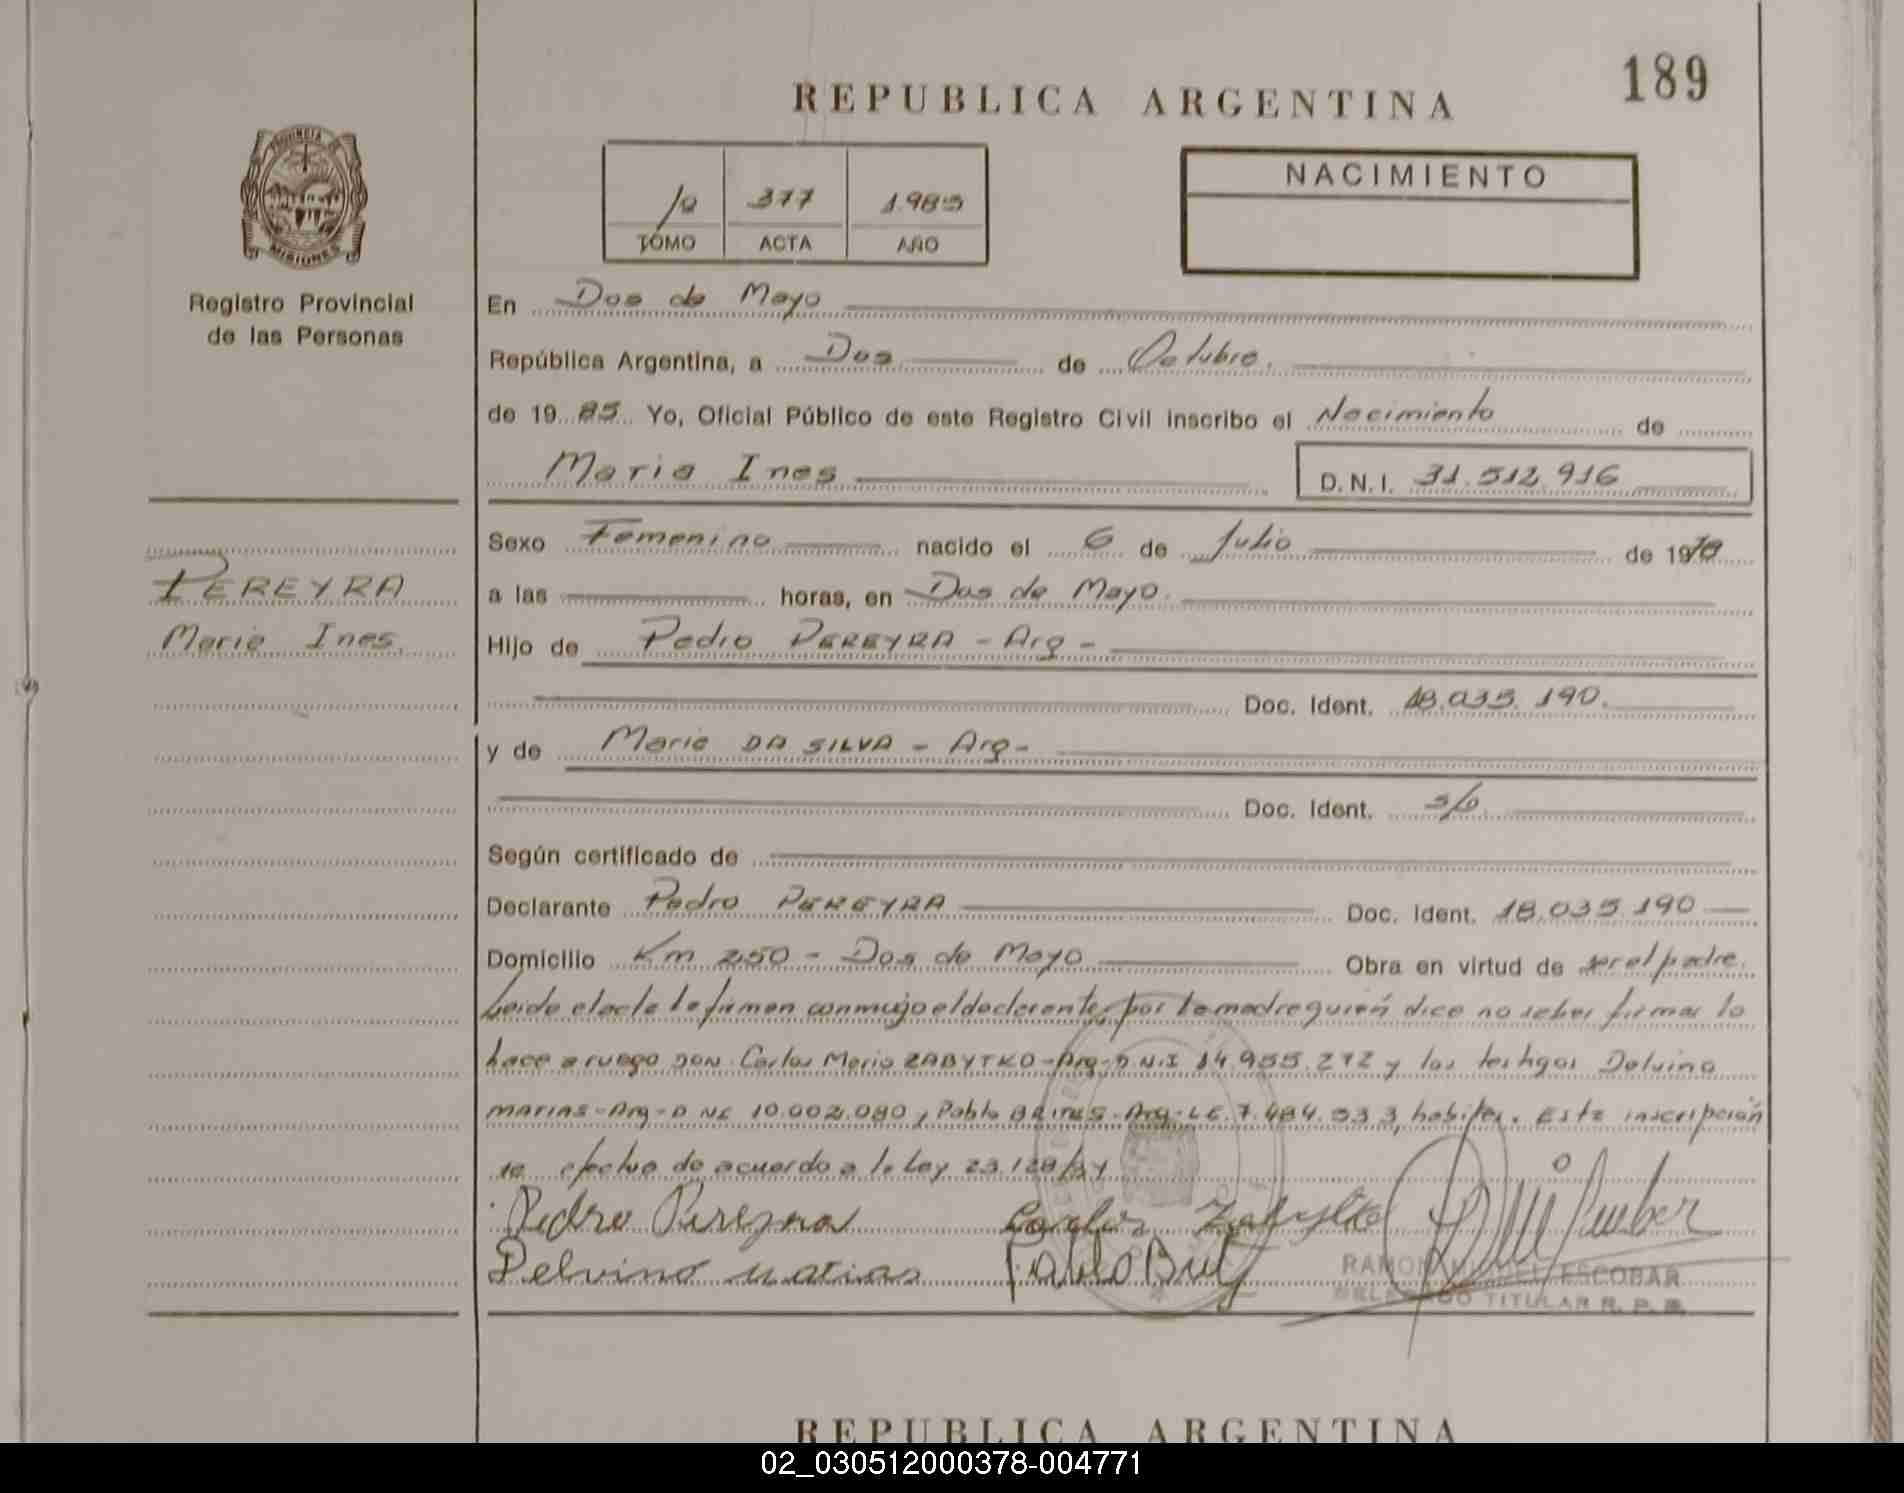 189
REPUBLICA ARGENTINA
PROVINCIA DE
MISIONES
Registro Provincial
de las Personas
1º 377 1.985
TOMO ACTA AÑO
NACIMIENTO
En Dos de Mayo
República Argentina, a Dos de Octubre.
de 19 85 Yo, Oficial Público de este Registro Civil inscribo el Nacimiento de
Maria Ines D.N.I. 31.512.916
Sexo Femenino nacido el 6 de Julio de 19
PEREYRA
Maria Ines.
a las horas, en Dos de Mayo.
Hijo de Pedro PEREYRA - Arg -
Doc. Ident. 18.035.190.
y de Maria DA SILVA - Arg -
Doc. Ident. s/o
Según certificado de
Declarante Pedro PEREYRA Doc. Ident. 18.035.190
Domicilio Km 250 - Dos de Mayo Obra en virtud de ser el padre.
Leida el acta la firman conmigo el declarante, por la madre quien dice no saber firmar lo
hace a ruego DON Carlos Mario ZABYTKO - Arg - D.N.I 14.955.272 y los testigos Delvino
MATIAS - Arg - D NI 10.002.080, Pablo - Arg - L.E. 7.484.533, habiles. Esta inscripción
se efectua de acuerdo a la Ley 23.128/84
Pedro Pereyra Carlos Zabytko
Delvino Matias Pablo
RAMON ESCOBAR
DELEGADO TITULAR R. P. P.
REPUBLICA ARGENTINA
02_030512000378-004771